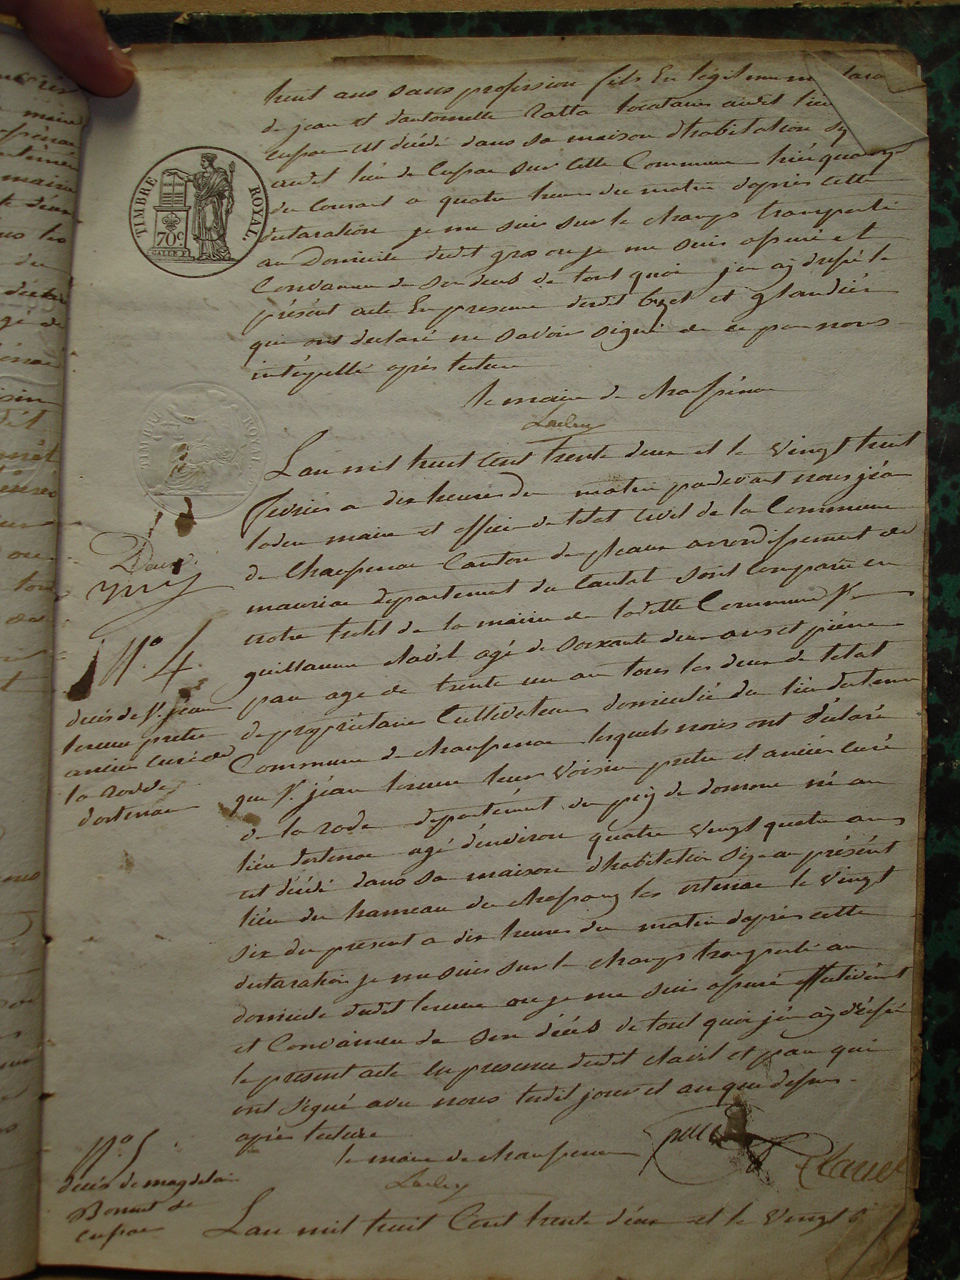 huit ans sans profession fils En légitime mariage
de jean et d'antoinette Ratta locataire audit lieu
cussac est décédé dans sa maison d'habitation sy
audit lieu de Cussac sur cette Commune hier quatorze
du Courant a quatre heures du matin d'après cette
declaration je me suis sur le champs transporté
au Domicile dudit ou je me suis assuré et
Convaincu de son deces de tout quoi j'en ai dressé le
présent acte En presence dudit et glandier
qui ont declaré ne savoir signé de ce par nous
intérpellé après lecture
le maire de chaussenac
TIMBRE ROYAL.
70c
Lan mil huit cent trente deux et le vingt huit
fevrier a dix heures du matin pardevant nous jean
maire et officier de letat civil de la Commune
de Chaussenac Canton de pleaux arrondissement de
mauriac departement du Cantal sont comparu en
notre hotel de la mairie de ladite Commune
guillaume clavel agé de soixante deux ans et pierre
pau age de trente un an tous les deux de letat
de propriétaire Cultivateur domicilié du lieu dostenac
Commune de chaussenac lesquels nous ont déclaré
que Sr. jean leur voisin pretre et ancien curé
de la rode departement du puy de domme né au
lieu dostenac agé d'environ quatre vingt quatre ans
est décédé dans sa maison d'habitation size au présent
lieu du hameau de les ostenac le vingt
six du present a dix heures du matin d'après cette
declaration je me suis sur le champs transporté au
domicile dudit ou je me suis assuré effectivement
et Convaincu de son décés de tout quoi j'en ai dréssé
le present acte En presence dudit clavel et pau qui
ont signé avec nous ledit jour et an que dessus.
après lecture
le maire de chaussenac
pau
Clavel
Deux
No. 4
décès de Sr. jean
pretre
ancien curé de
la rode
dostenac
No. 5
décés de magdelaine
Bonnet de
cussac
Lan mil huit Cent trente deux et le vingt